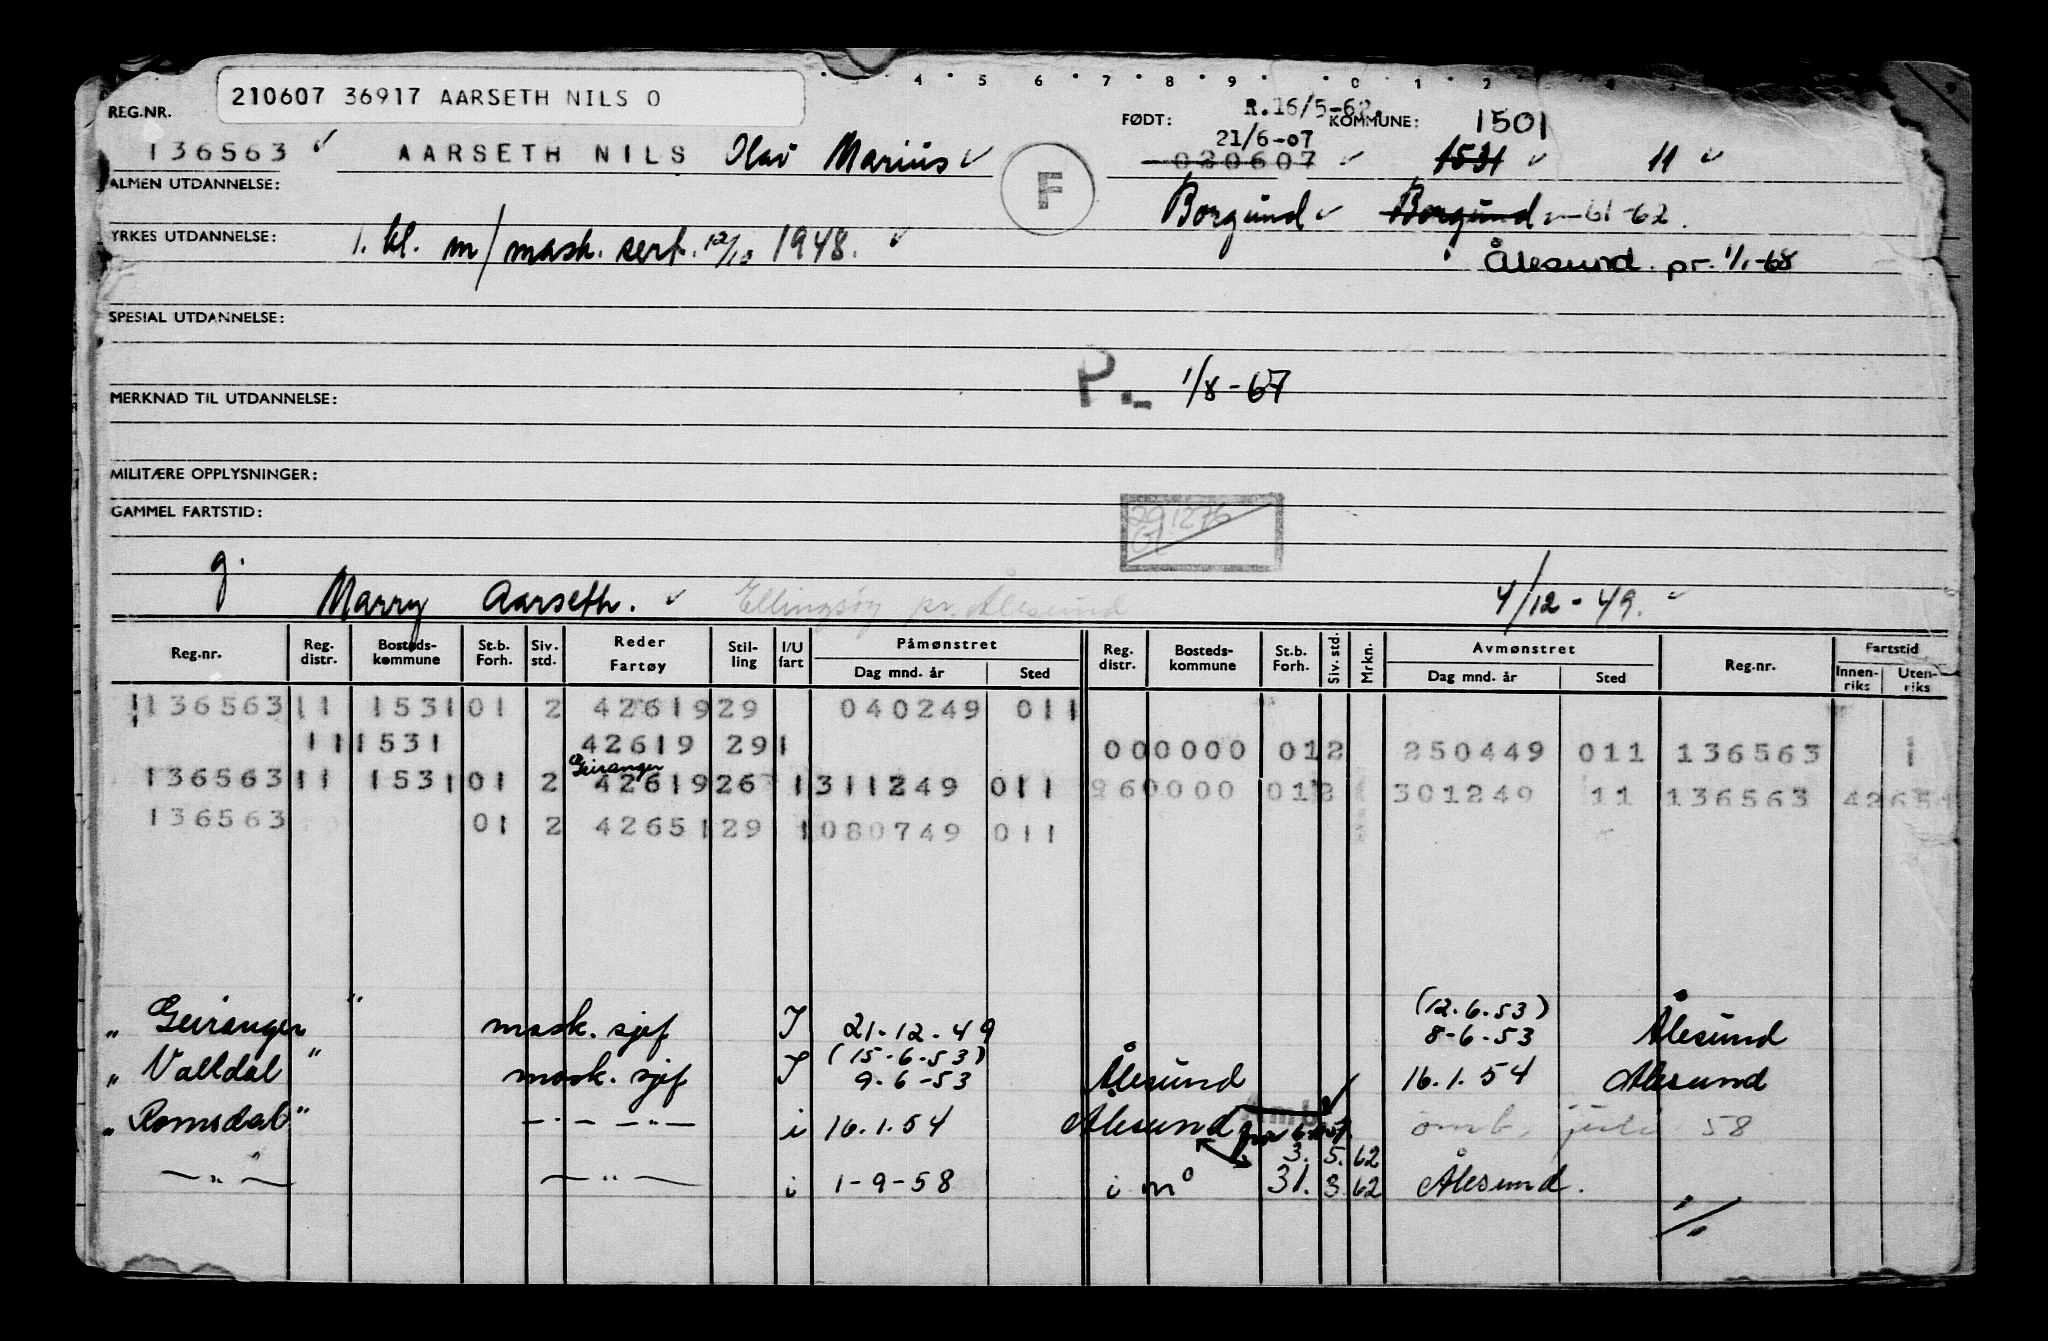 210607 36917 AARSETH NILS O
4 5 6 7 8 9 0 1 2
REG.NR.
FØDT: R.16/5-62. KOMMUNE: 1501
21/6-07
136563 AARSETH NILS Olav Marius 020607 1531 11
F
ALMEN UTDANNELSE:
Borgund Borgund 61-62.
YRKES UTDANNELSE: 1. kl. m/mask. sert. 12/10 1948.
Ålesund pr. 1/1-68
SPESIAL UTDANNELSE:
P.- 1/8-67
MERKNAD TIL UTDANNELSE:
MILITÆRE OPPLYSNINGER:
GAMMEL FARTSTID:
291276
g. Marry Aarseth. Ellingsøy pr. Ålesund 4/12-49.
Reg.nr. Reg. distr. Bosteds-kommune St.b. Forh. Siv. std. Reder Fartøy Stil-ling I/U fart Påmønstret Dag mnd. år Sted Reg. distr. Bosteds-kommune St.b. Forh. Siv. std. Mrkn. Avmønstret Dag mnd. år Sted Reg.nr. Fartstid Innen-riks Uten-riks
136563 11 1531 01 2 42619 29 040249 011
11 1531 42619 291 000000 012 250449 011 136563 1
Geiranger
136563 11 1531 01 2 42619 26 1 311249 011 960000 012 301249 11 136563
136563 01 2 42651 29 1 080749 011
(12.6.53)
" Geiranger " mask. sjef I 21.12.49 8-6-53 Ålesund
(15.6.53)
" Valldal " mask. sjef I 9.6-53 Ålesund 16.1.54 Ålesund
" Romsdal " —"— —"— i 16.1.54 Ålesund omb. juli 58
3. 5. 62
—"— —"— i 1-9-58 i må 31. 3. 62 Ålesund.